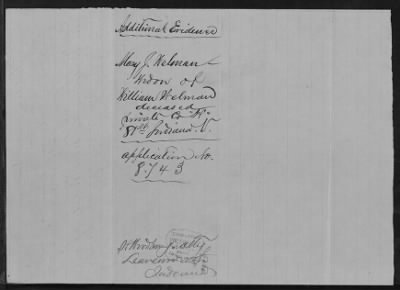 Additional Evidence
Mary J. Welman
Widow of
William Welman
deceased
Private Co "F"
81st Indiana V.
application No.
8743
Leavenworth
Indiana